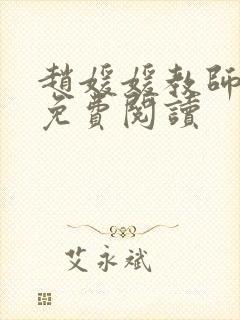 趙媛媛教師
免費閱讀
艾永斌